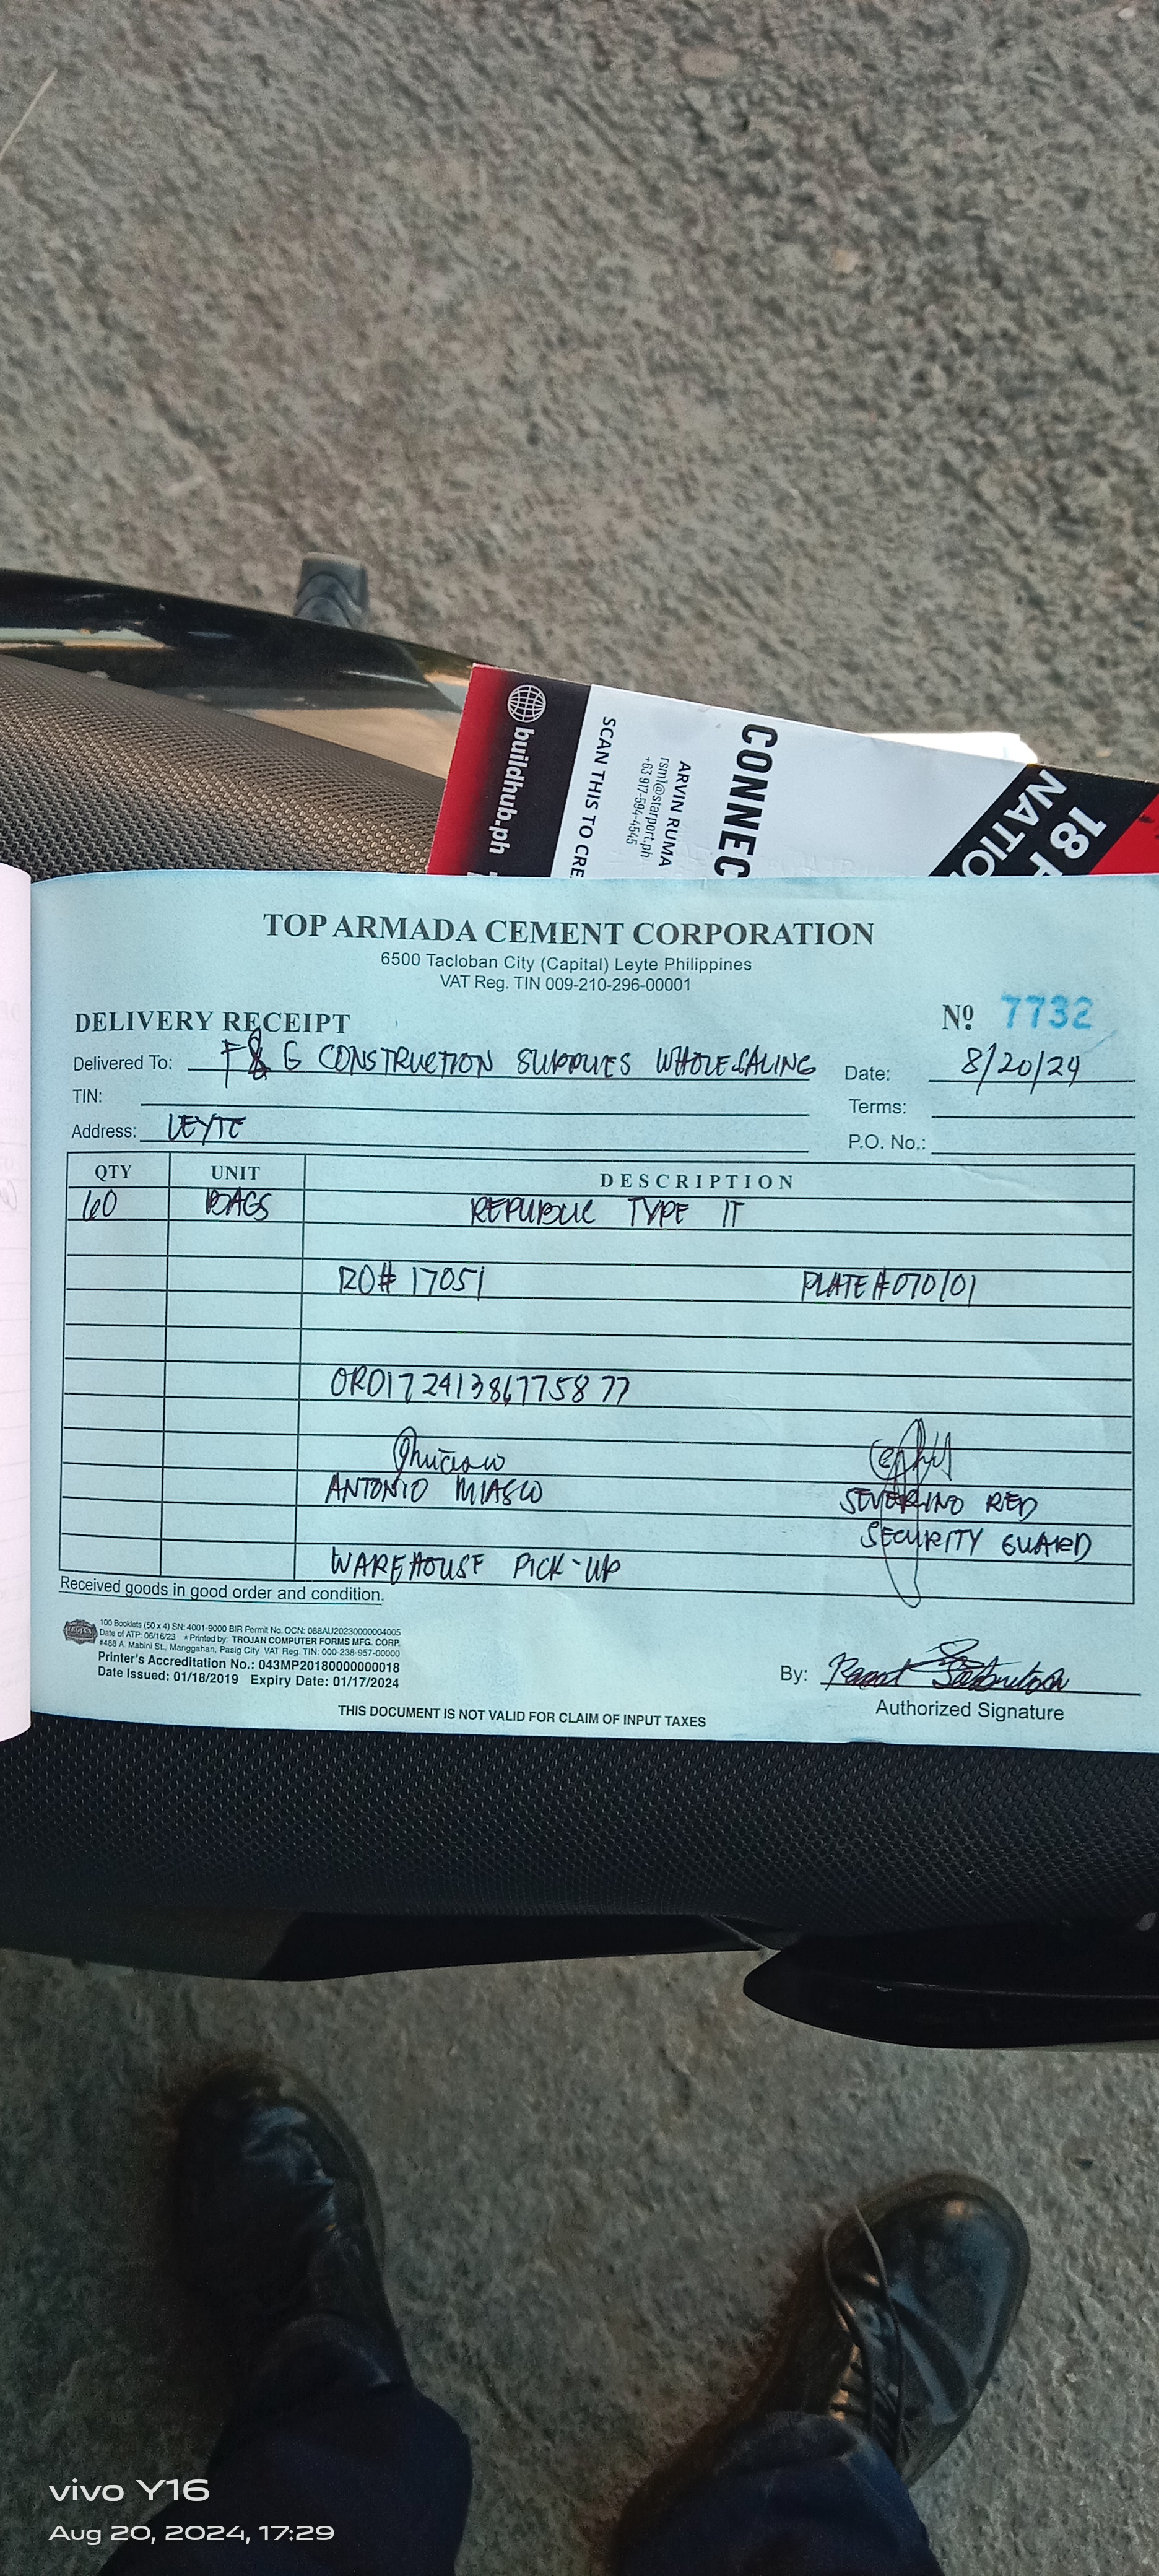 buildhub.ph
SCAN THIS TO CRE
ARVIN RUMA
rsml@starport.ph
+63 917-594-4545
CONNEC
18
NATIO
TOP ARMADA CEMENT CORPORATION
6500 Tacloban City (Capital) Leyte Philippines
VAT Reg. TIN 009-210-296-00001
DELIVERY RECEIPT Nº 7732
Delivered To: F & G CONSTRUCTION SUPPLIES WHOLESALING Date: 8/20/24
TIN: Terms:
Address: LEYTE P.O. No.:
QTY UNIT DESCRIPTION
60 BAGS REPUBLIC TYPE IT
RO# 17051 PLATE # 070101
ORD17241386775877
ANTONIO MIASCO SEVERINO RED
SECURITY GUARD
WAREHOUSE PICK-UP
Received goods in good order and condition.
100 Booklets (50 x 4) SN: 4001-9000 BIR Permit No. OCN: 088AU20230000004005
Date of ATP: 06/16/23 * Printed by: TROJAN COMPUTER FORMS MFG. CORP.
#488 A. Mabini St., Manggahan, Pasig City VAT Reg. TIN: 000-238-957-00000
Printer's Accreditation No.: 043MP20180000000018
Date Issued: 01/18/2019 Expiry Date: 01/17/2024
By:
Authorized Signature
THIS DOCUMENT IS NOT VALID FOR CLAIM OF INPUT TAXES
vivo Y16
Aug 20, 2024, 17:29